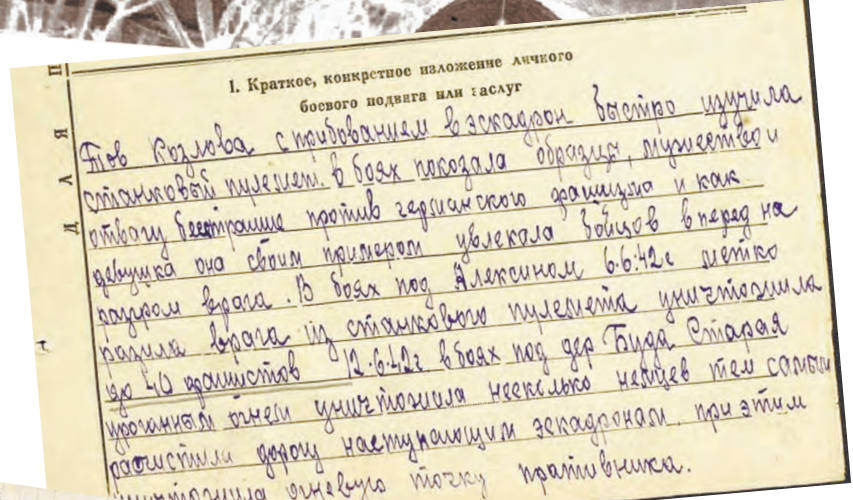 I. Краткое, конкретное изложение личного
боевого подвига или заслуг
Тов Козлова с прибованием в эскадрон быстро изучила
станковый пулемет. в боях показала образцы, мужество и
отвагу бестрашие против германского фашизма и как
девушка она своим примером увлекала бойцов вперед на
разгром врага. В боях под Алексином 6.6.42г метко
разила врага из станкового пулемета уничтожила
до 40 фашистов 12.6.42г в боях под дер Буда Старая
ураганным огнем уничтожила несколько немцев тем самым
расчистили дорогу наступающим эскадронам, при этим
уничтожила огневую точку противника.
Д Л Я П